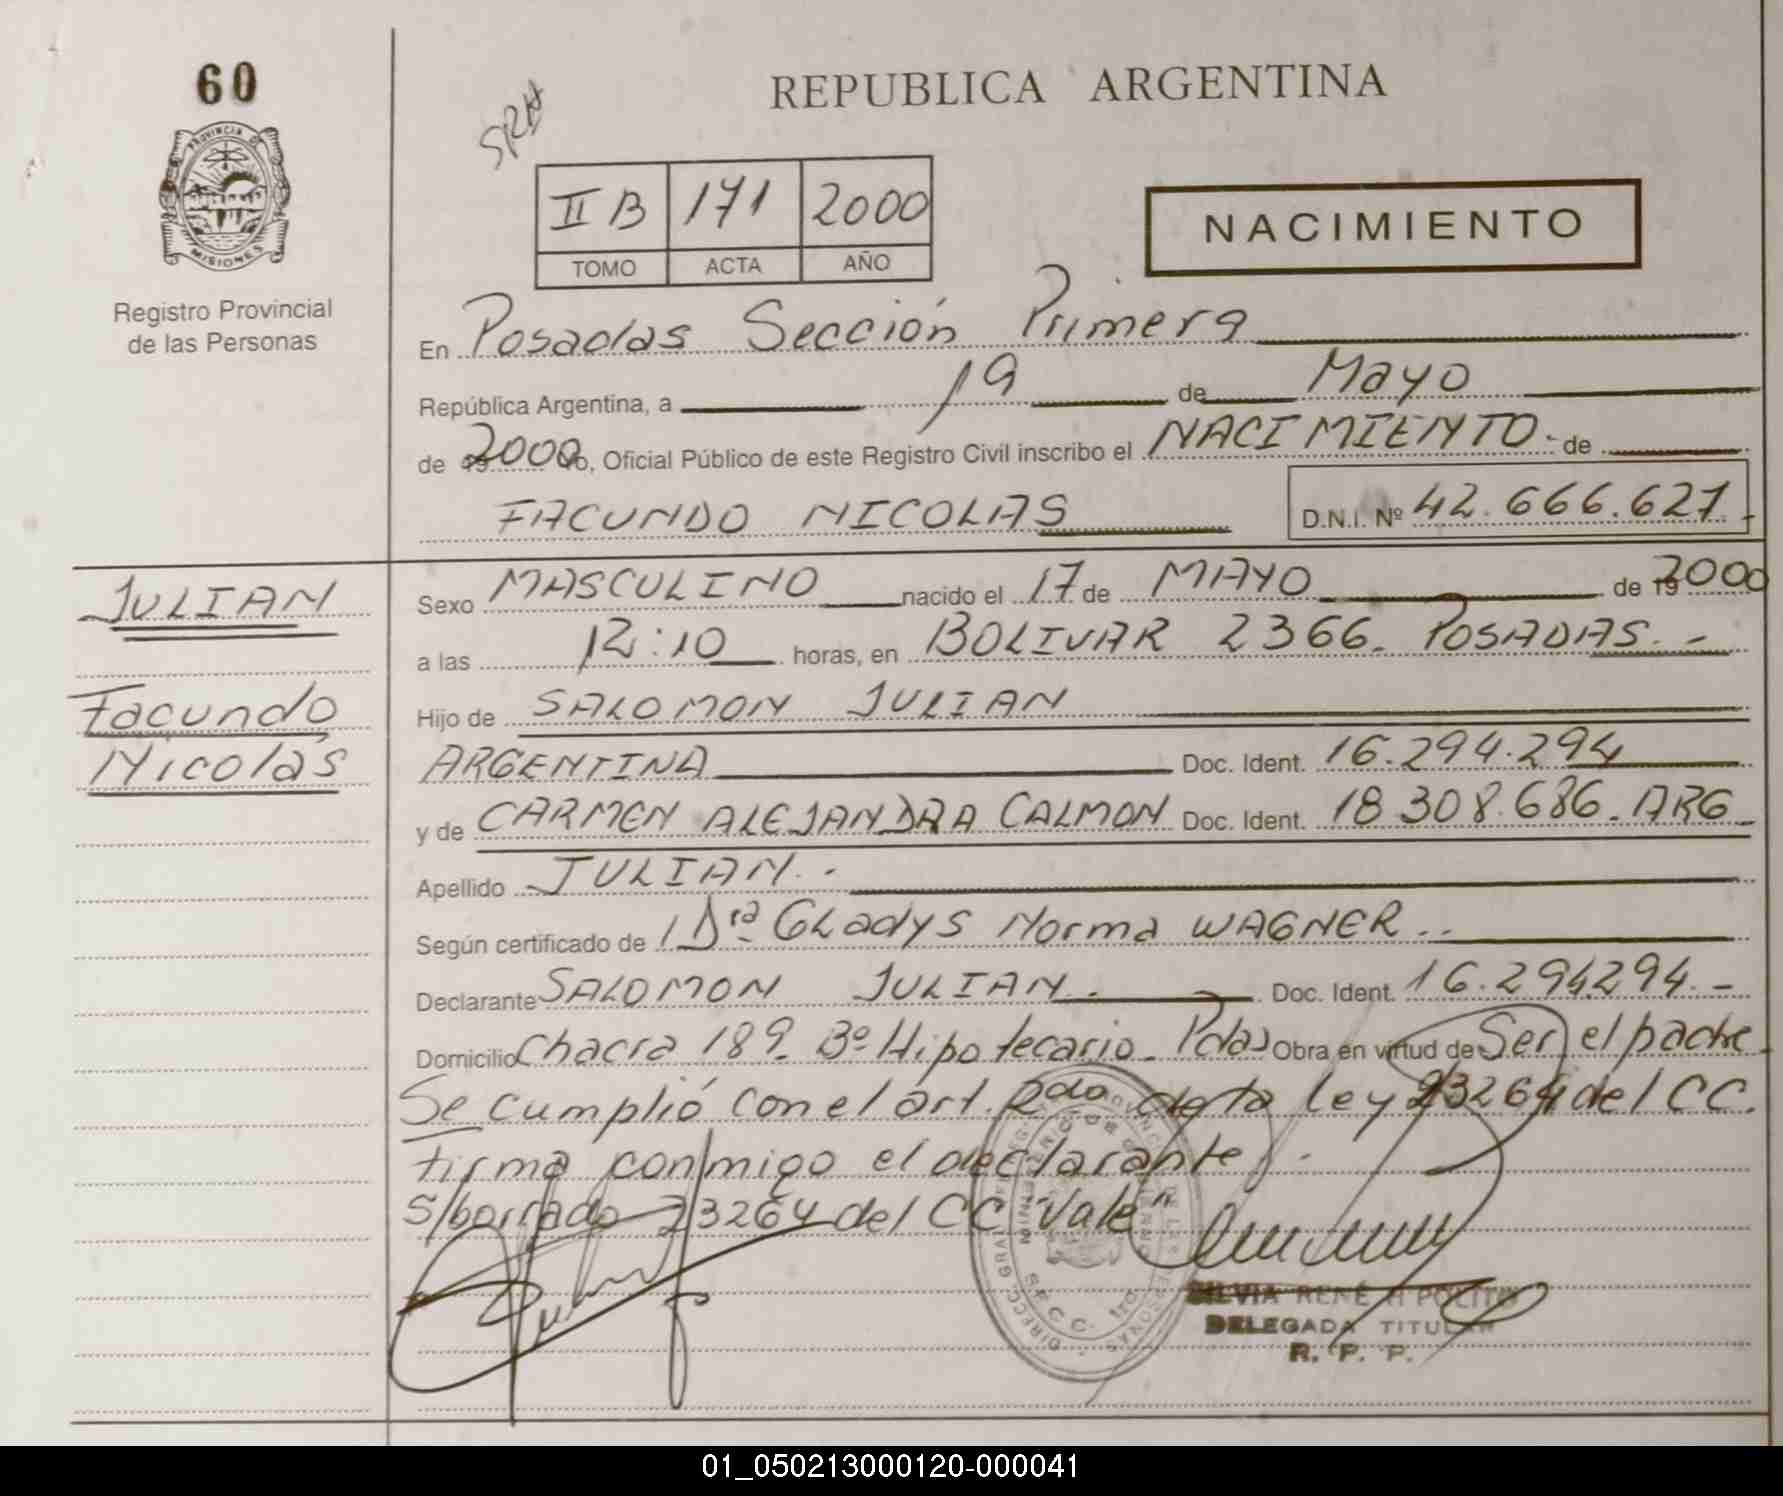 60
PROVINCIA DE
MISIONES
Registro Provincial
de las Personas
SRH
REPUBLICA ARGENTINA
II B 171 2000
TOMO ACTA AÑO
NACIMIENTO
En Posadas Sección Primera
República Argentina, a 19 de Mayo
de 2000 yo, Oficial Público de este Registro Civil inscribo el NACIMIENTO - de
FACUNDO NICOLAS D.N.I. Nº 42.666.627 -
JULIAN
Facundo
Nicolás
Sexo MASCULINO nacido el 17 de MAYO de 19 2000
a las 12:10 horas, en BOLIVAR 2366. POSADAS. -
Hijo de SALOMON JULIAN
ARGENTINA Doc. Ident. 16.294.294
y de CARMEN ALEJANDRA CALMON Doc. Ident. 18 308.686. ARG
Apellido JULIAN. -
Según certificado de Dra GLadys Norma WAGNER ..
Declarante SALOMON JULIAN. Doc. Ident. 16.294294. -
Domicilio Chacra 189. Bº Hipotecario. Pdas Obra en virtud de Ser el padre
Se cumplió con el art. 2do de la Ley 23264 del CC.
firma conmigo el declarante. -
S/borrado 23264 del CC "Vale"
SILVIA RENÉ HIPOLITO
DELEGADA TITULAR
R. P. P.
01_050213000120-000041